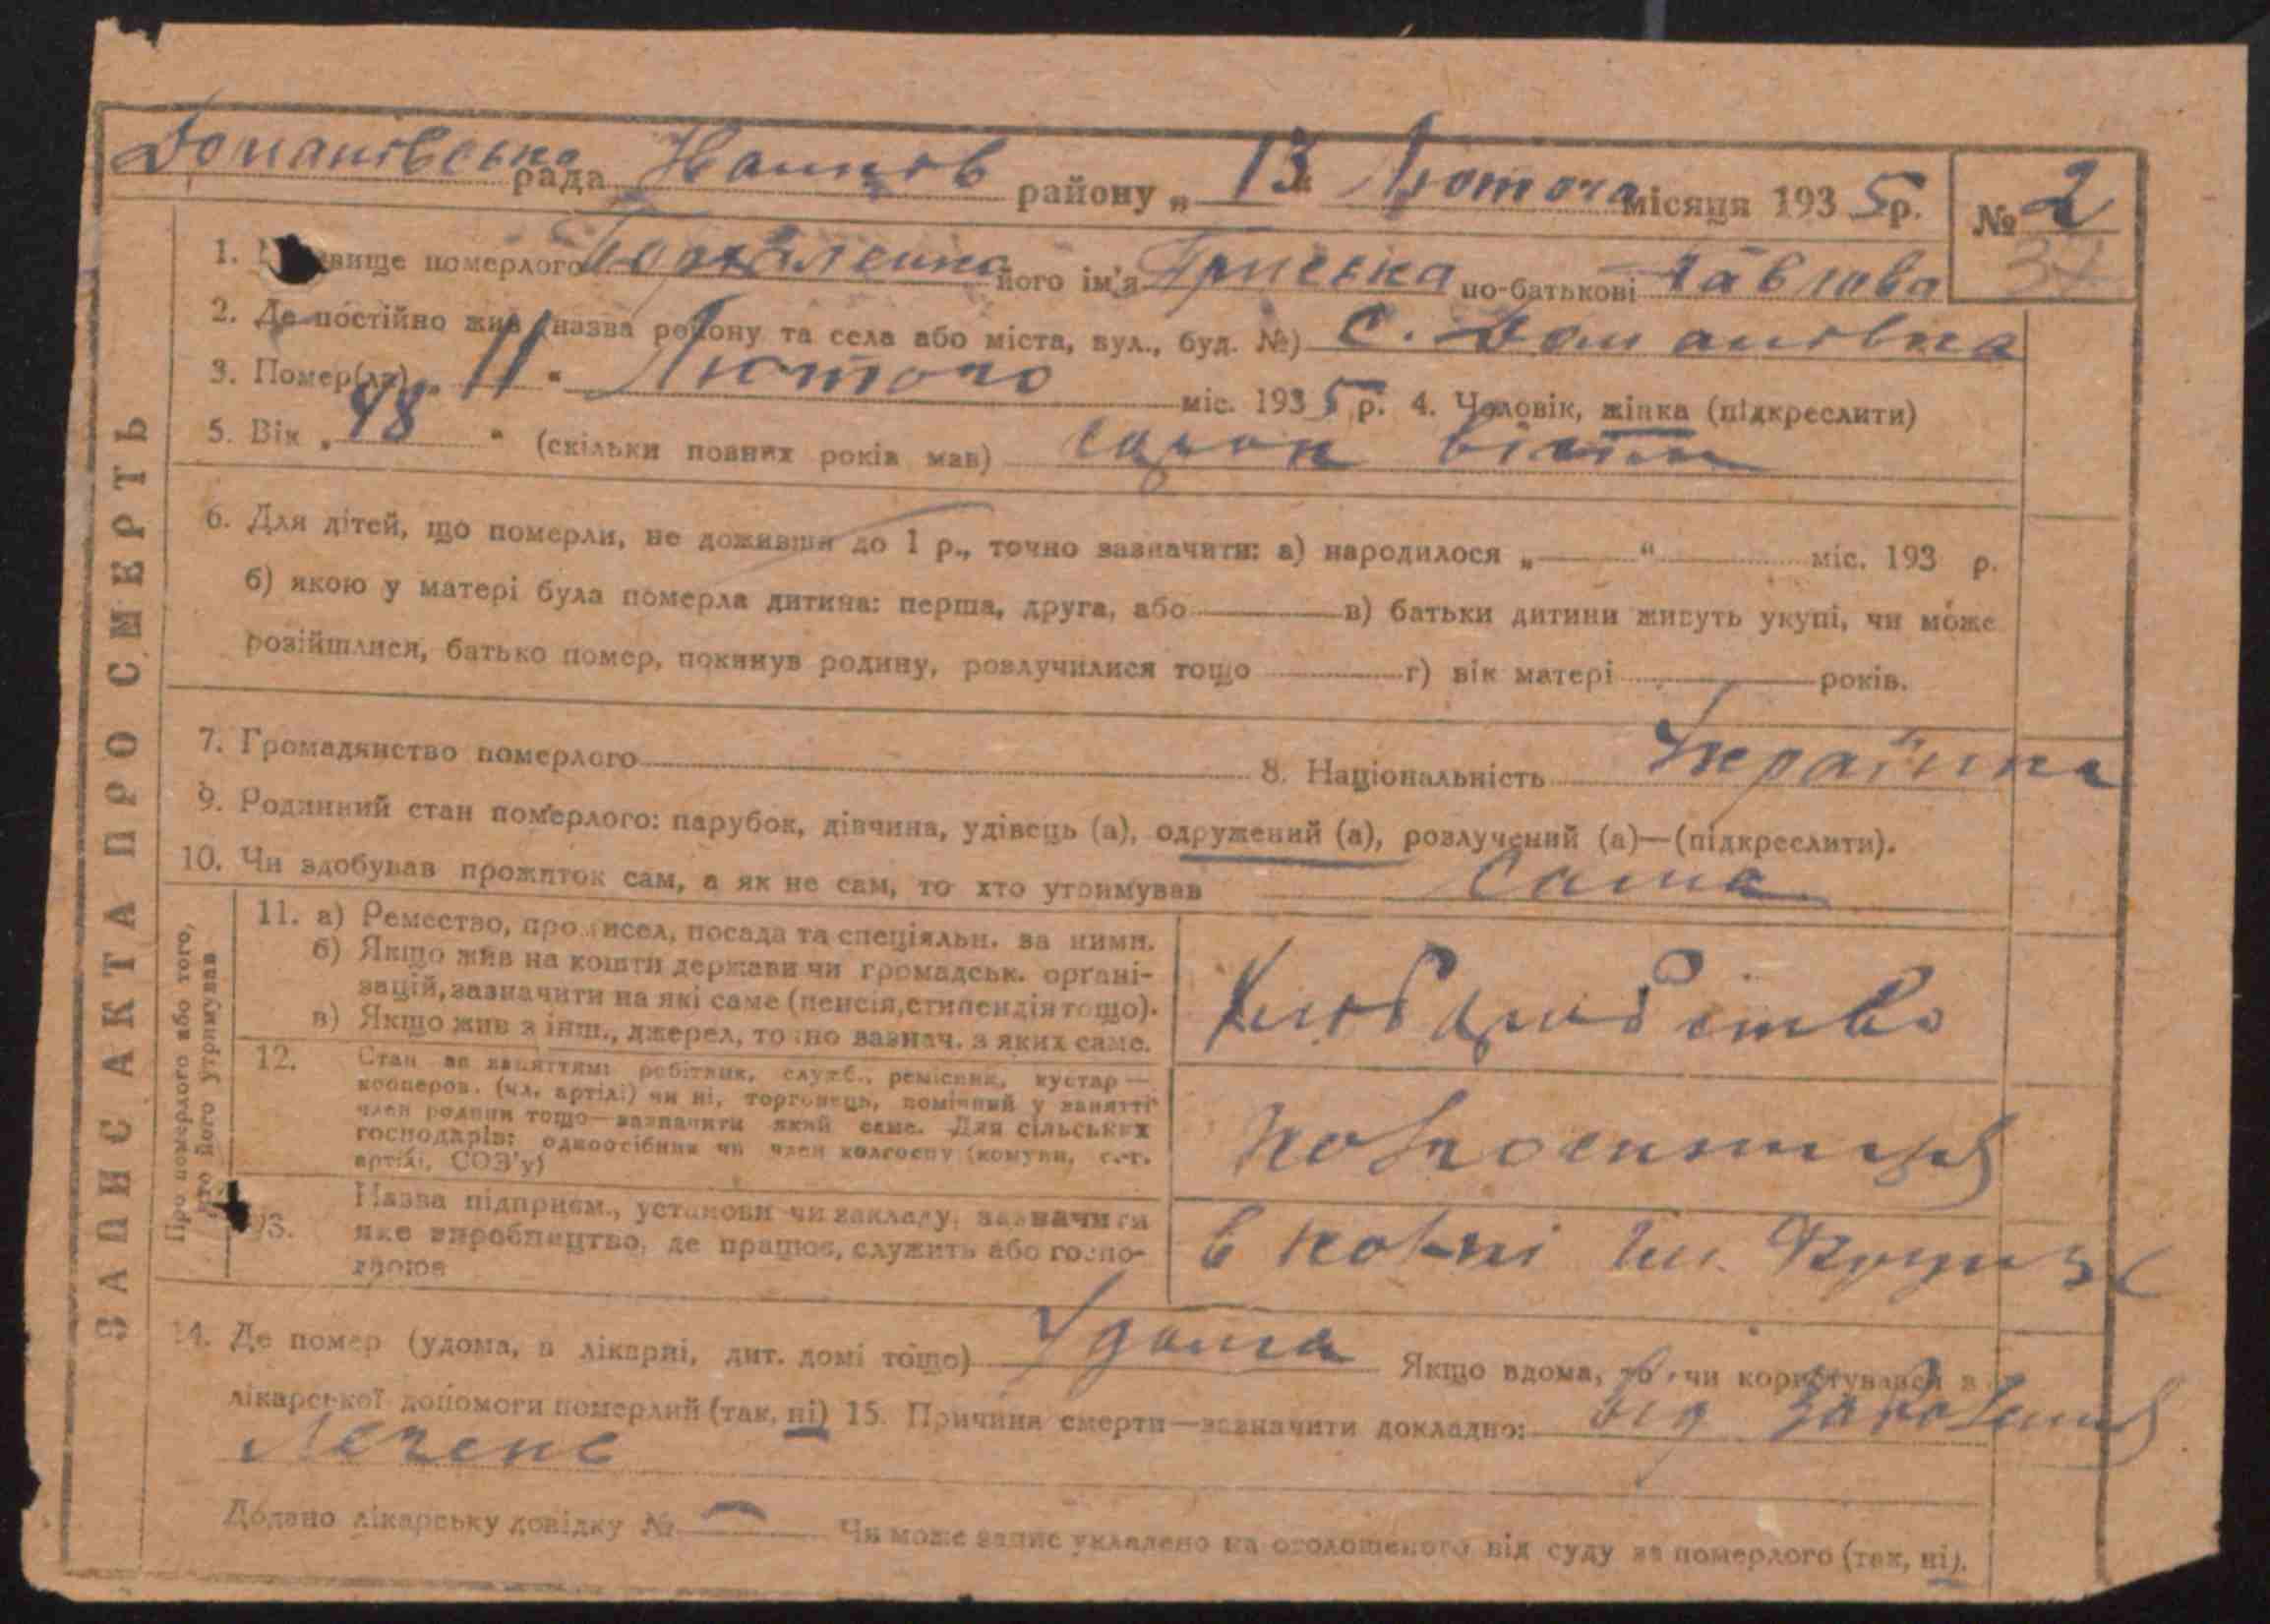 ЗАПИС АКТА ПРО СМЕРТЬ
Доманівська рада району „ 13 “ Лютого місяця 1935 р. № 2
37
1. вище померлого його ім'я Приська по-батькові Павлова
2. Де постійно жив (назва району та села або міста, вул., буд. №) С. Доманівка
3. Помер(ла) „ 11 “ Лютого міс. 1935 р. 4. Чоловік, жінка (підкреслити)
5. Вік „ 48 “ (скільки повних років мав) сорок вісім
6. Для дітей, що померли, не доживши до 1 р., точно зазначити: а) народилося „ “ міс. 193 р.
б) якою у матері була померла дитина: перша, друга, або в) батьки дитини живуть укупі, чи може
розійшлися, батько помер, покинув родину, розлучилися тощо г) вік матері років.
7. Громадянство померлого 8. Національність Українка
9. Родинний стан померлого: парубок, дівчина, удівець (а), одружений (а), розлучений (а)—(підкреслити).
10. Чи здобував прожиток сам, а як не сам, то хто утримував Сама
Про померлого або того, хто його утримував
11. а) Ремество, промисел, посада та спеціяльн. за ними.
б) Якщо жив на кошти держави чи громадськ. органі-
зацій, зазначити на які саме (пенсія, стипендія тощо).
в) Якщо жив з інш., джерел, точно зазнач. з яких саме.
Хліборобство
12. Стан за заняттям: робітник, служб., ремісник, кустар —
кооперов. (чл. артілі) чи ні, торговець, помічний у занятті
член родини тощо—зазначити який саме. Для сільських
господарів: одноосібник чи член колгоспу (комуни, с.-г.
артілі, СОЗ'у)
Колгоспниця
13. Назва підприєм., установи чи закладу, зазначити
яке виробництво, де працює, служить або госпо-
дарює
в колгсі ім.
14. Де помер (удома, в лікарні, дит. домі тощо) Удома Якщо вдома, то чи користувався з
лікарської допомоги померлий (так, ні) 15. Причина смерти—зазначити докладно: від
Легень
Додано лікарську довідку № Чи може запис укладено на оголошеного від суду за померлого (так, ні).